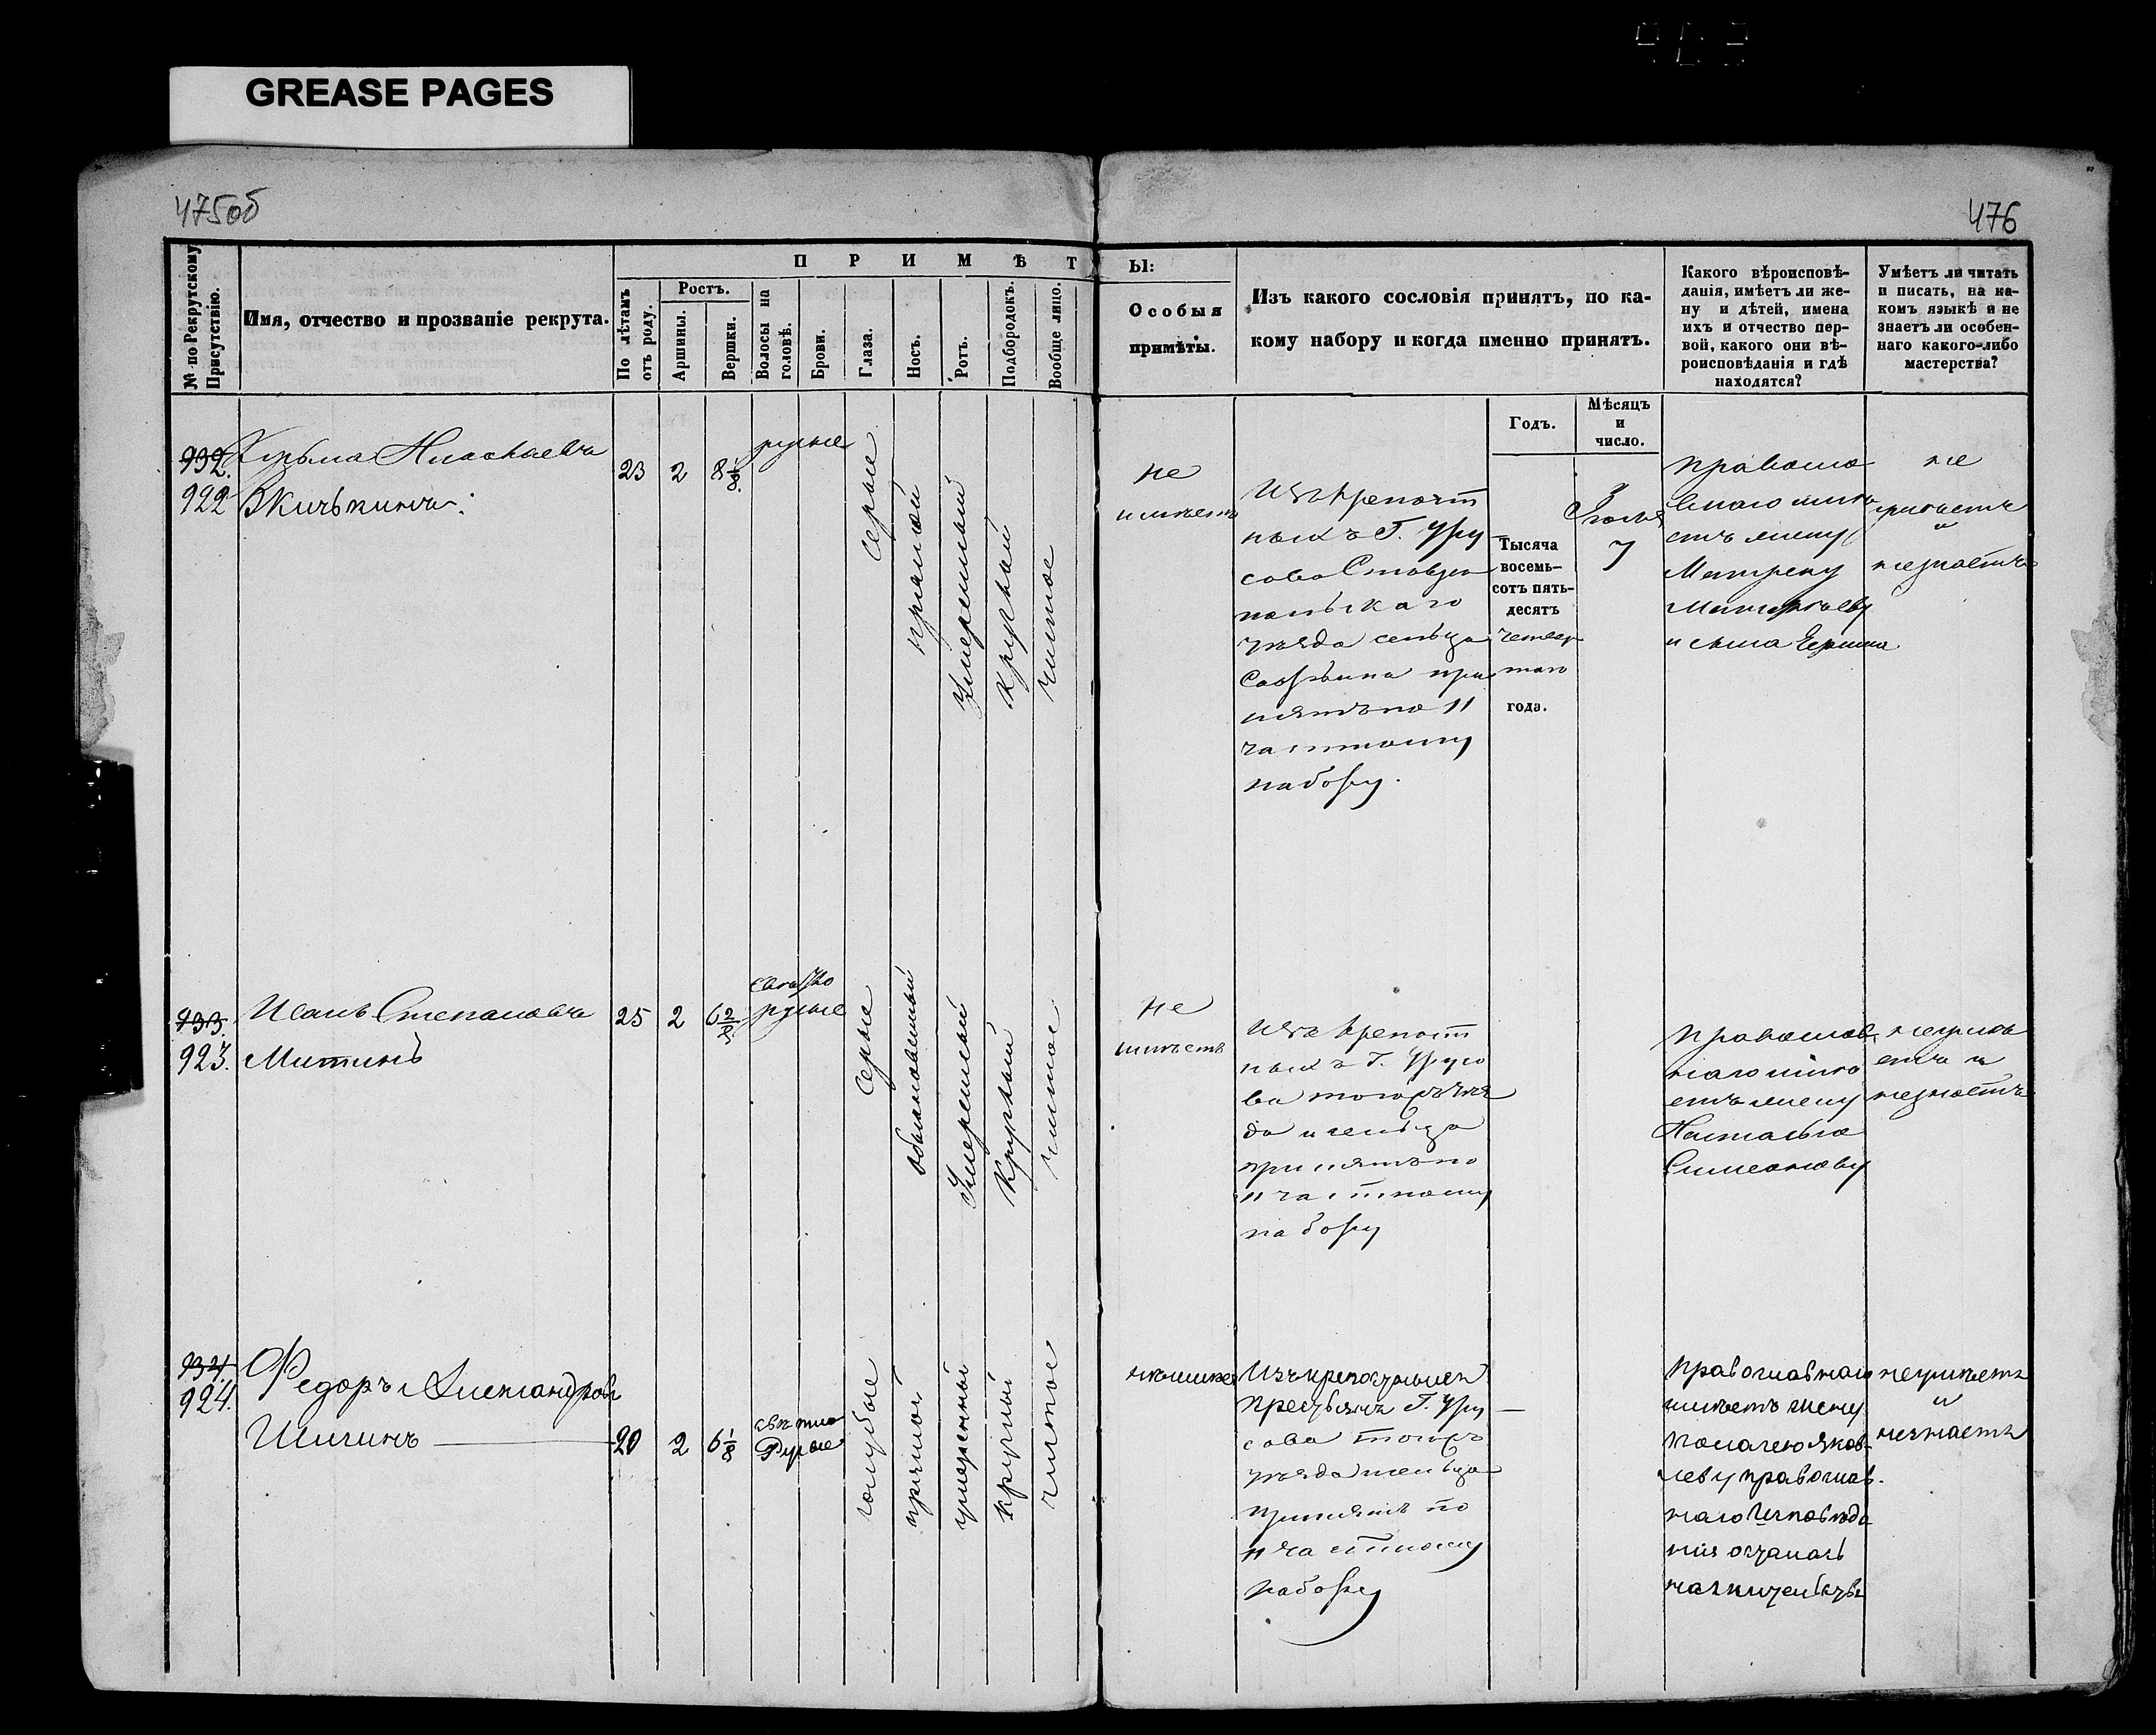 GREASE PAGES
475об
476
№ по Рекрутскому Присутствію.
Имя, отчество и прозваніе рекрута.
П Р И М Ѣ Т
Ы:
По лѣтамъ отъ роду.
Ростъ.
Аршины.
Вершки.
Волосы на головѣ.
Брови.
Глаза.
Носъ.
Ротъ.
Подбородокъ.
Вообще лицо.
Особыя
примѣты.
Изъ какого сословія принятъ, по ка-
кому набору и когда именно принятъ.
Какого вѣроисповѣ-
данія, имѣетъ ли же-
ну и дѣтей, имена
ихъ и отчество пер-
вой, какого они вѣ-
роисповѣданія и гдѣ
находятся?
Умѣетъ ли читать
и писать, на ка-
комъ языкѣ и не
знаетъ ли особен-
наго какого-либо
мастерства?
Годъ.
Мѣсяцъ
и
число.
932.
922
Кузьма
23
2
8 1/8.
русые
серые
прямой
умеренный
круглый
чистое
не
имѣетъ
Изъ крепост
ныхъ Г. Уру
сова Ставро
польскаго
уѣзда сельца
при
нятъ по 11
частному
набору.
Тысяча
восемь-
сотъ пять-
десятъ
четвер
таго
года.
7
правосла
внаго имѣ
етъ жену
Матрену
и сына
не
умѣетъ
и
незнаетъ
933.
923.
Иванъ Степановъ
Митинъ
25
2
6 2/8.
светло
русые
серые
обыкновенный
умеренный
круглый
чистое
не
имѣетъ
Изъ крепост
ныхъ Г. Урусо
ва тогожъ уѣз
да и сельца
принятъ по
11 частному
набору
православ
наго имѣ
етъ жену
Наталью
Симеонову
неумѣ
етъ и
незнаетъ
934.
924.
Федоръ Александровъ
Шигинъ
20
2
6 1/8
свѣтло
Русые
голубые
прямой
умеренный
круглый
чистое
неимѣетъ
Изъ крепостныхъ
Крестьянъ Г. Уру
сова тогожъ
уѣзда и сельца
принятъ по
11 частному
набору
православнаго
имѣетъ жену
Пелагею Яков-
леву православ.
наго исповѣда
нія осталась
нажительствѣ
неумѣетъ
и
незнаетъ